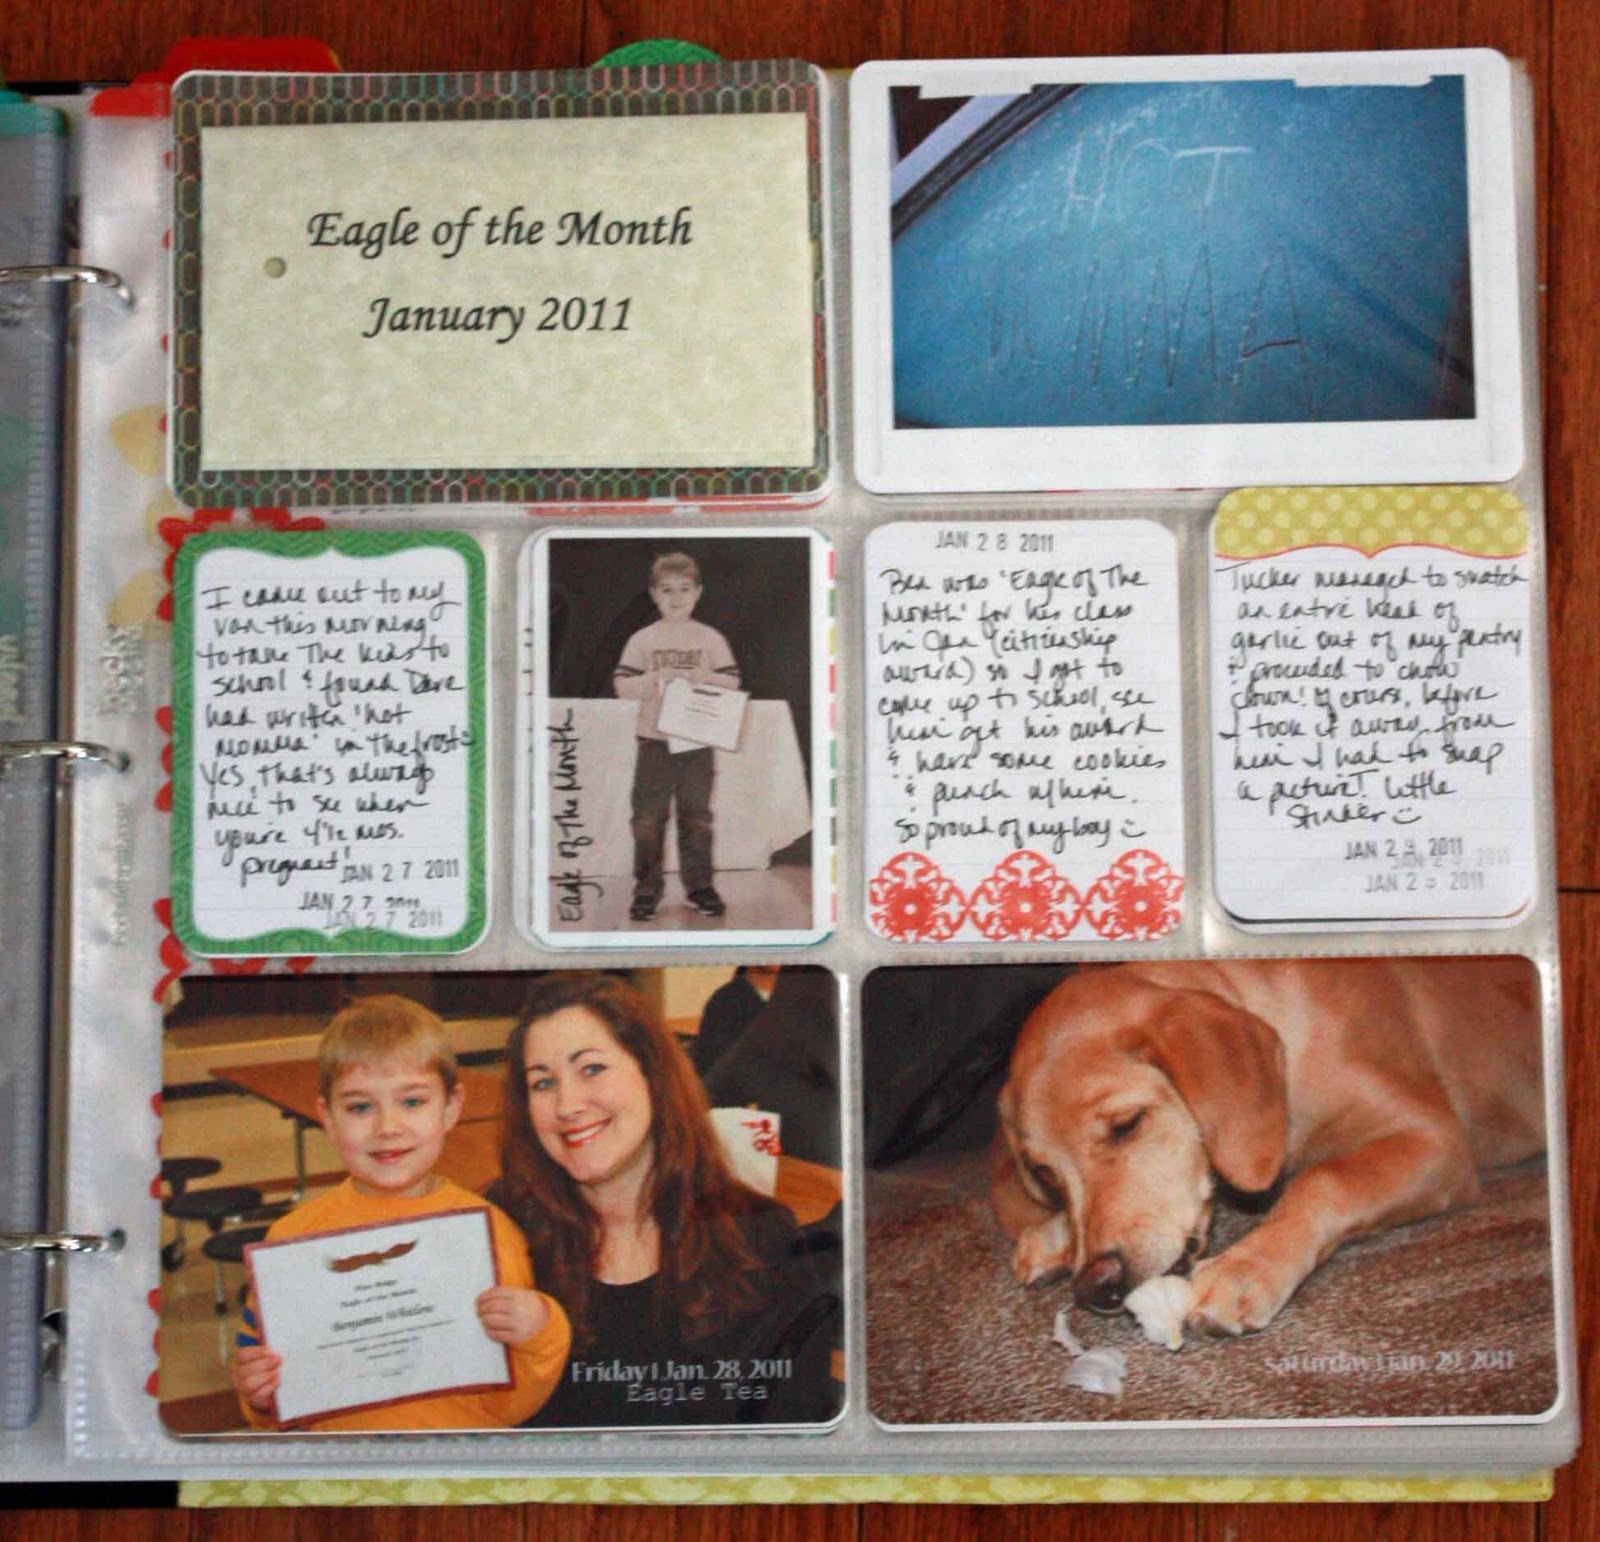 Eagle of the Month
January 2011
HOT
MOMMA
I came out to my
van this morning
to take the kids to
school & found Dave
had written 'hot
momma' in the frost
Yes, that's always
nice to see when
you're 4 1/2 mos.
pregnant!
JAN 27 2011
JAN 27 2011
JAN 27 2011
Eagle of The Month
JAN 28 2011
Ben was 'Eagle of The
Month' for his class
in Jan (citizenship
award) so I got to
come up to school, see
him get his award
& have some cookies
& punch w/him.
So proud of my boy
Tucker managed to snatch
an entire head of
garlic out of my pantry
& proceeded to chow
down! Of course, before
I took it away from
him I had to snap
a picture! Little
Stinker
JAN 29 2011
JAN 29 2011
JAN 2 2011
Eagle of the Month
Benjamin
Friday | Jan. 28, 2011
Eagle Tea
saturday | jan. 29, 2011